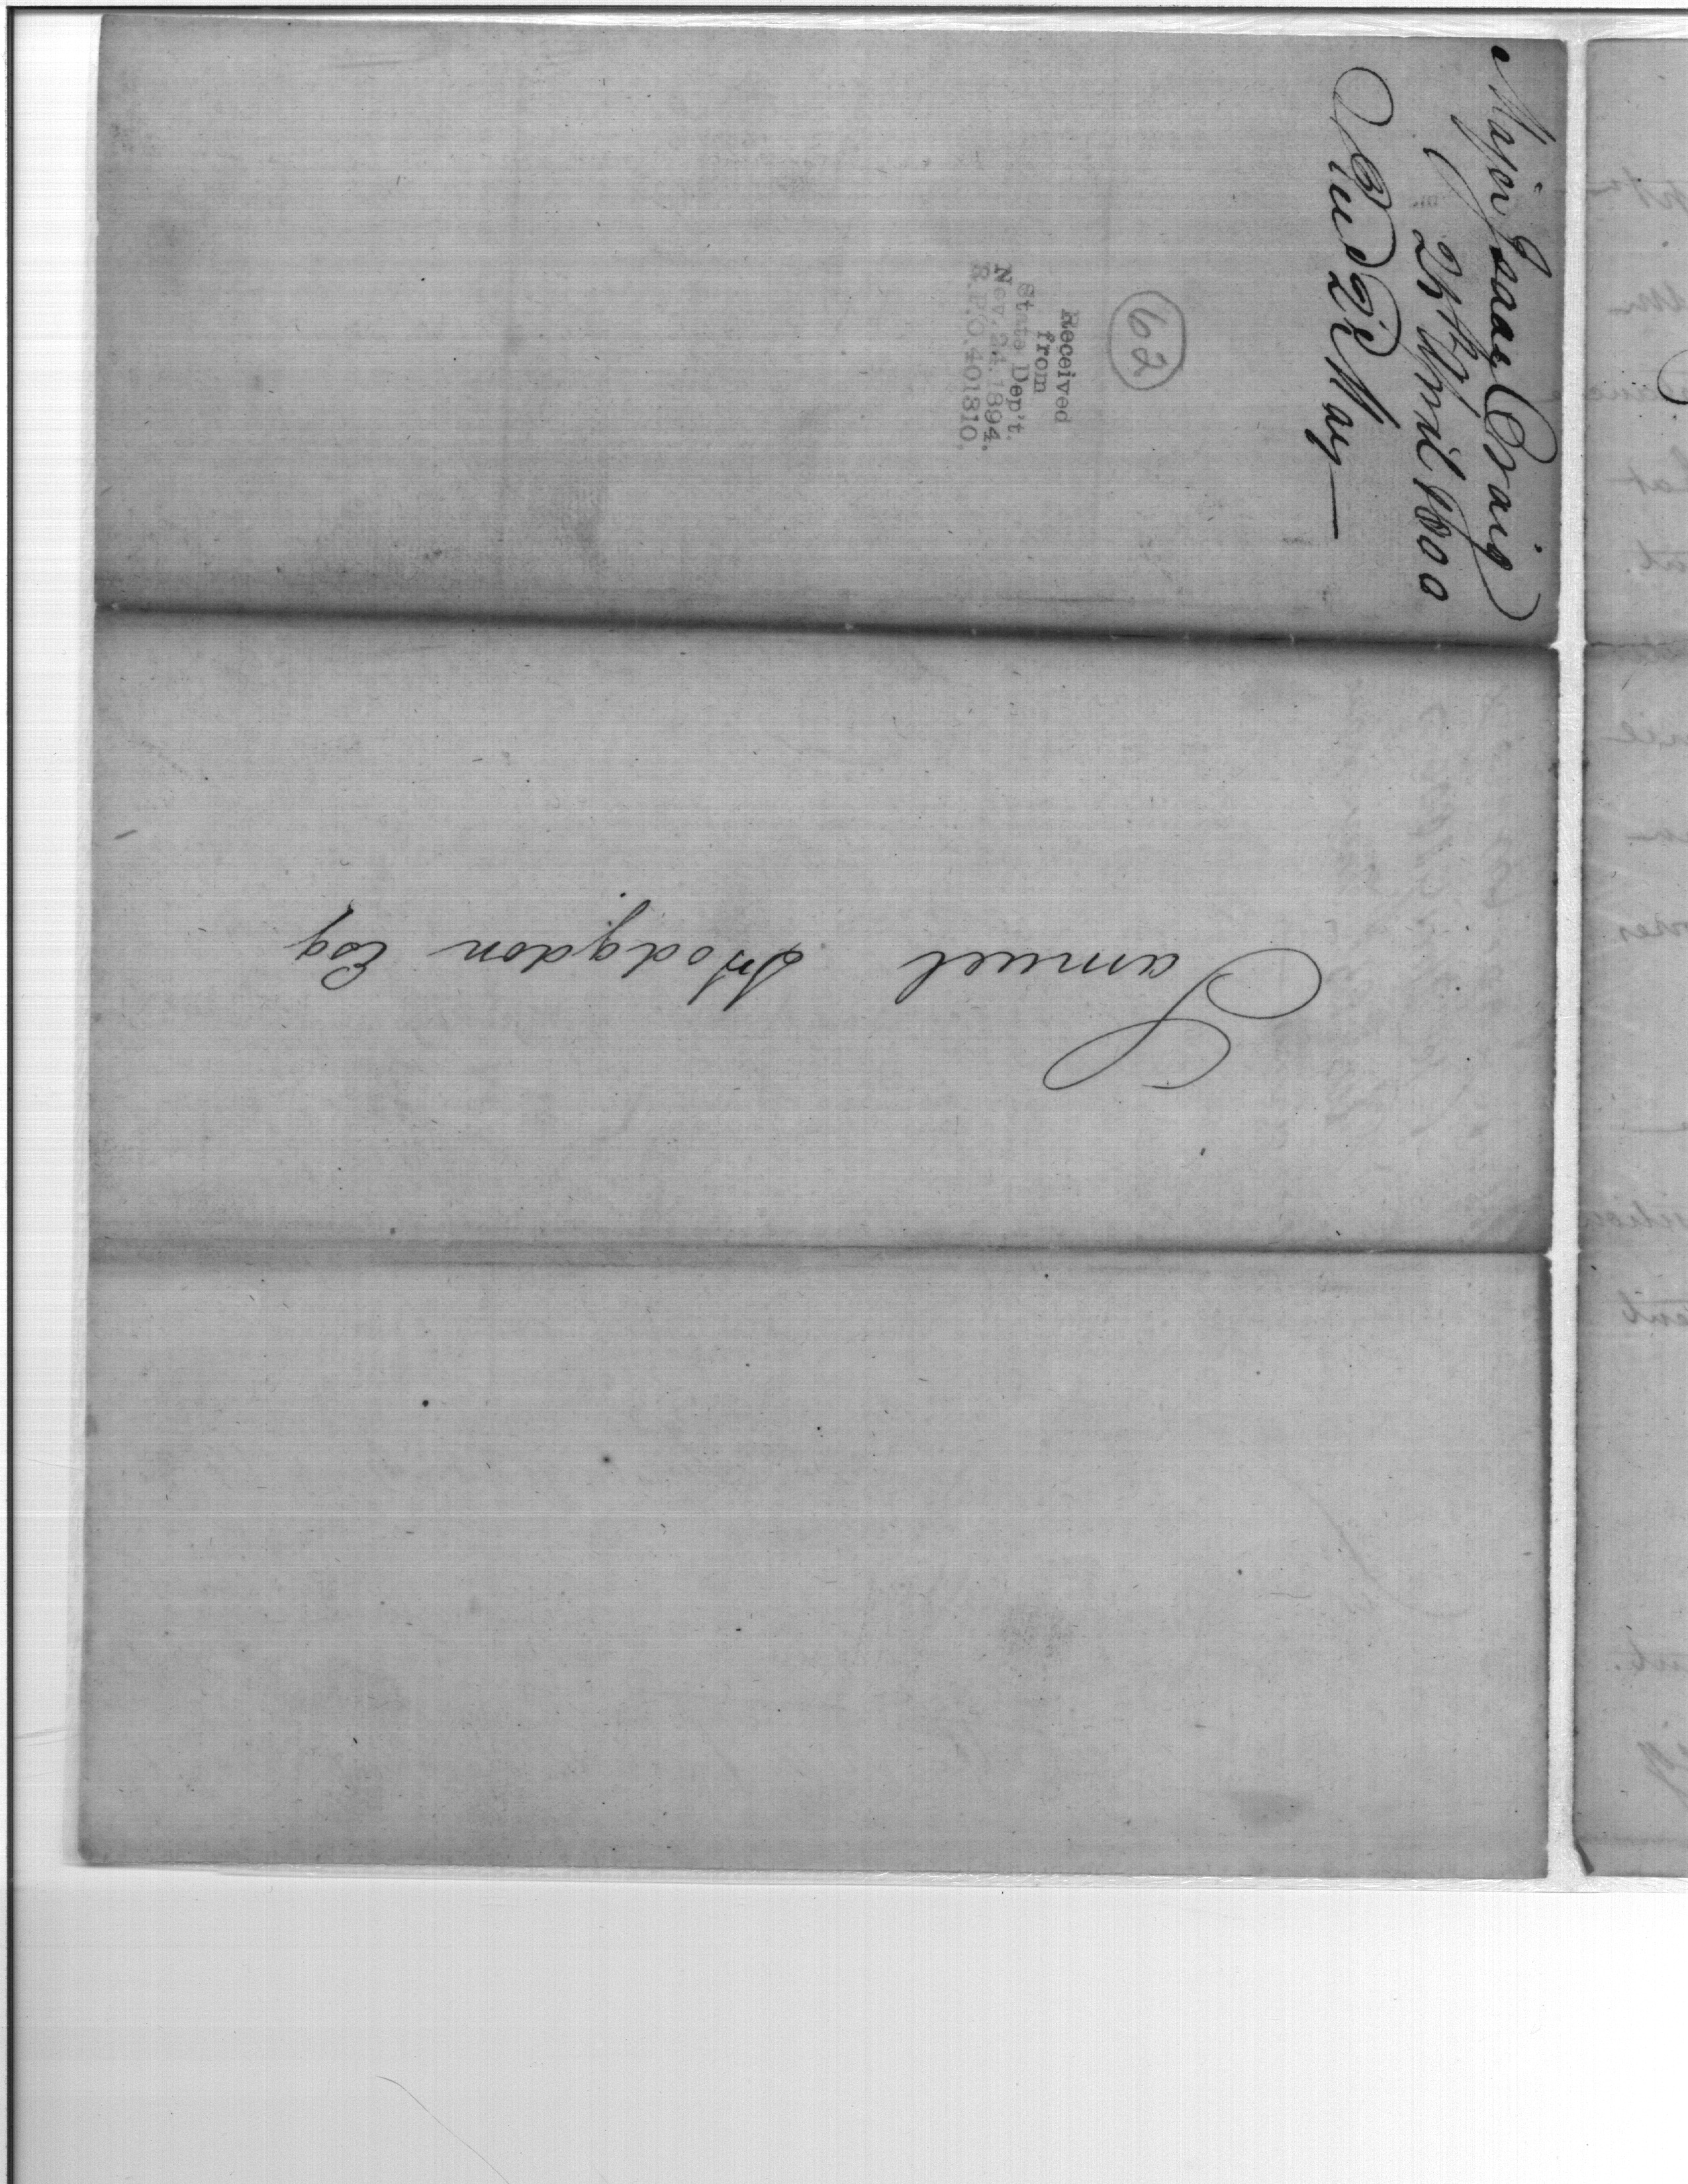 Major Isaac Craig
25th April 1800
Recd 2d May
62
Received
from
State Dep't.
Nov. 24. 1894.
R.P.O. 401810.
Samuel Hodgdon Esq